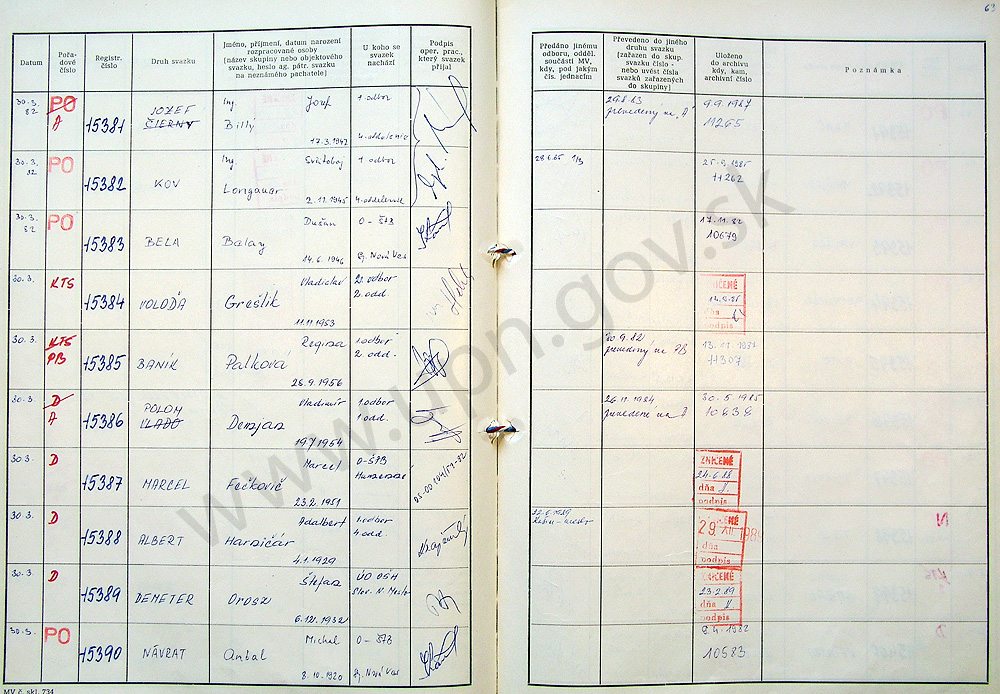 63
Datum
Pořa-
dové
číslo
Registr.
číslo
Druh svazku
Jméno, příjmení, datum narození
rozpracované osoby
(název skupiny nebo objektového
svazku, heslo ag. pátr. svazku
na neznámého pachatele)
U koho se
svazek
nachází
Podpis
oper. prac.,
který svazek
přijal
Předáno jinému
odboru, odděl.
součásti MV,
kdy, pod jakým
čís. jednacím
Převedeno do jiného
druhu svazku
(zařazen do skup.
svazku číslo -
nebo uvést čísla
svazků zařazených
do skupiny)
Uloženo
do archivu
kdy, kam,
archivní číslo
Poznámka
30.3.
82
PO
A
15381
JOZEF
ČIERNY
Ing. Jozef
Billý
17.3.1947
1 odbor
4. oddelenie
29.8.83
prevedený na "A"
9.9.1987
11265
30.3.
82
PO
15382
KOV
Ing. Svätoboj
Longauer
2.11.1945
1 odbor
4. oddelenie
28.6.85
25.9.1985
11262
30.3.
82
PO
15383
BELA
Dušan
Balay
14.6.1946
O-ŠTB
Sp. Nová Ves
17.11.82
10679
30.3.
KTS
15384
VOLOĎA
Vladislav
Grešlik
11.11.1953
2. odbor
2. odd.
ZNIČENÉ
dňa
podpis
30.3.
KTS
PB
15385
BANÍK
Regina
Palková
26.9.1956
1. odbor
2. odd.
30.9.82
prevedený na PB
11307
30.3.
D
A
15386
POLOM
VLADO
Vladimír
Demjan
19.7.1954
1. odbor
1. odd.
26.11.1984
30.5.1985
30.3
D
15387
MARCEL
Marcel
Fečkovič
23.2.1951
O-ŠTB
Humenné
ZNIČENÉ
24.6.88
dňa
podpis
30.3.
D
15388
ALBERT
Adalbert
Harničár
4.1.1929
1. odbor
4 odd.
ZNIČENÉ
29. XII. 1989
dňa
podpis
N
30.3.
D
15389
DEMETER
Štefan
Orosz
6.12.1932
ÚO OŠH
Slov. N. Mesto
ZNIČENÉ
23.2.89
dňa
podpis
30.3.
PO
15390
NÁVRAT
Michal
Anbal
8.10.1920
O-ŠTB
Sp. Nová Ves
8.4.1982
10583
MV č. skl. 734
www.upn.gov.sk